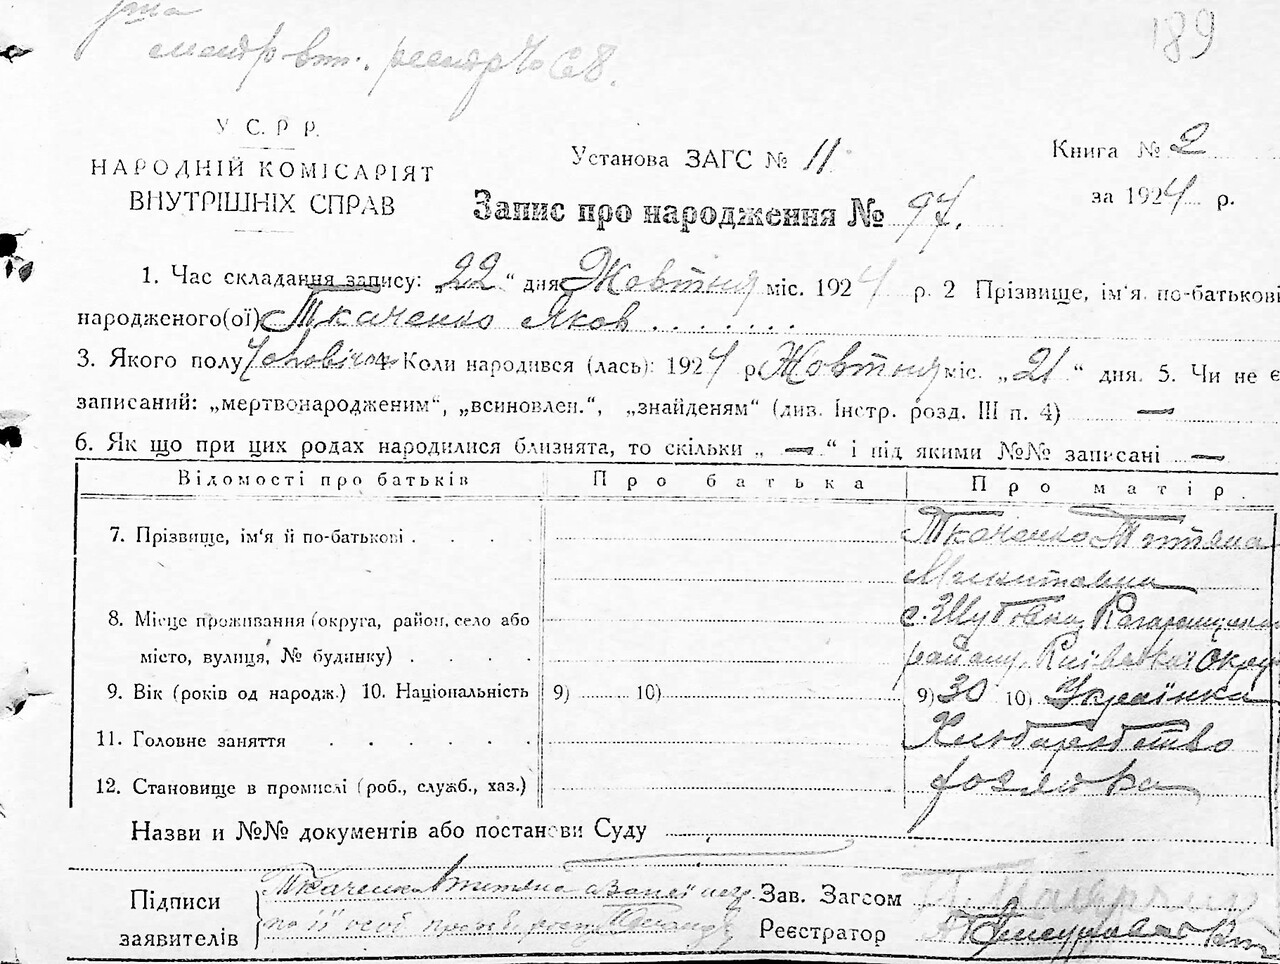 189
У. С. Р. Р.
НАРОДНІЙ КОМІСАРІЯТ
ВНУТРІШНІХ СПРАВ
Установа ЗАГС № 11
Книга № 2
за 1924 р.
Запис про народження № 97.
1. Час складання запису: „22“ дня Жовтня міс. 1924 р. 2 Прізвище, ім'я. по-батькові
народженого(ої) Ткаченко Яков . . . . . . .
3. Якого полу 4 Коли народився (лась): 1924 р Жовтня міс. „21“ дня. 5. Чи не є
записаний: „мертвонародженим“, „всиновлен.“, „знайденям“ (див. Інстр. розд. III п. 4) —
6. Як що при цих родах народилися близнята, то скільки „ — “ і під якими №№ записані —
Відомості про батьків Про батька Про матір.
7. Прізвище, ім'я й по-батькові . . . . Ткаченко Тетяна
Микитовна
8. Місце проживання (округа, район, село або с. Шубовка
місто, вулиця, № будинку) . . . . району, Київської Округ
9. Вік (років од народж.) 10. Національність 9) 10) 9) 30 10) Українка
11. Головне заняття . . . . . Хлібаробство
12. Становище в промислі (роб., служб., хаз.)
Назви и №№ документів або постанови Суду
Підписи
заявителів
Ткаченко Тетяна
по її
Зав. Загсом
Реєстратор